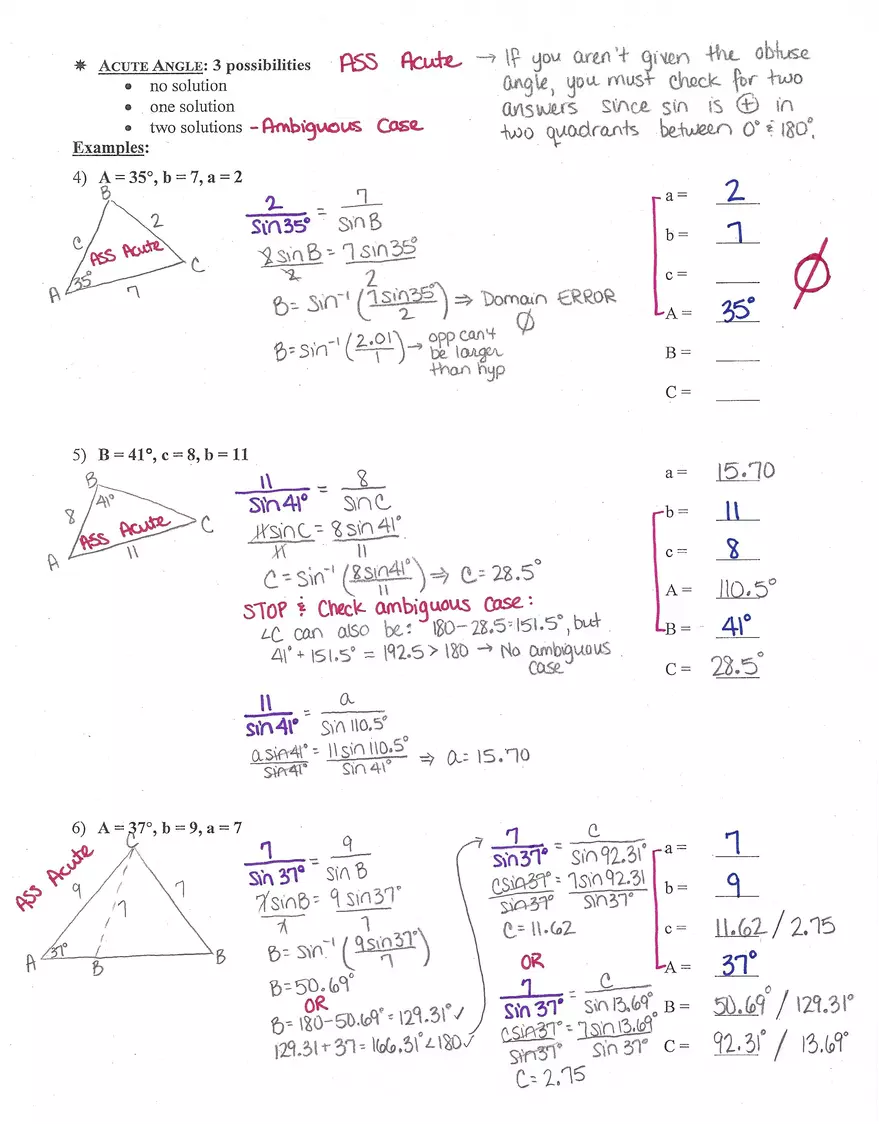 * ACUTE ANGLE: 3 possibilities ASS Acute → If you aren't given the obtuse
• no solution angle, you must check for two
• one solution answers since sin is ⊕ in
• two solutions - Ambiguous Case two quadrants between 0° & 180°.
Examples:
4) A = 35°, b = 7, a = 2
B
C 2
ASS Acute
35° C
A 7
2/sin35° = 7/sinB
2sinB/2 = 7sin35°/2
B = sin⁻¹(7sin35°/2) ⇒ Domain ERROR
∅
B = sin⁻¹(2.01/1) → opp can't
be larger
than hyp
a = 2
b = 7
c =
A = 35°
B =
C =
∅
5) B = 41°, c = 8, b = 11
B
8 41°
ASS Acute C
A 11
11/sin41° = 8/sinC
11sinC/11 = 8sin41°/11
C = sin⁻¹(8sin41°/11) ⇒ C = 28.5°
STOP & Check ambiguous case:
∠C can also be: 180-28.5=151.5°, but
41° + 151.5° = 192.5 > 180 → No ambiguous
case
11/sin41° = a/sin110.5°
asin41°/sin41° = 11sin110.5°/sin41° ⇒ a = 15.70
a = 15.70
b = 11
c = 8
A = 110.5°
B = 41°
C = 28.5°
6) A = 37°, b = 9, a = 7
C
ASS Acute
9 7 7
A 37° B B
7/sin37° = 9/sinB
7sinB/7 = 9sin37°/7
B = sin⁻¹(9sin37°/7)
B = 50.69°
OR
B = 180-50.69° = 129.31° ✓
129.31 + 37 = 166.31° < 180 ✓
7/sin37° = C/sin92.31°
csin37°/sin37° = 7sin92.31/sin37°
C = 11.62
OR
7/sin37° = C/sin13.69°
csin37°/sin37° = 7sin13.69°/sin37°
C = 2.75
a = 7
b = 9
c = 11.62 / 2.75
A = 37°
B = 50.69° / 129.31°
C = 92.31° / 13.69°